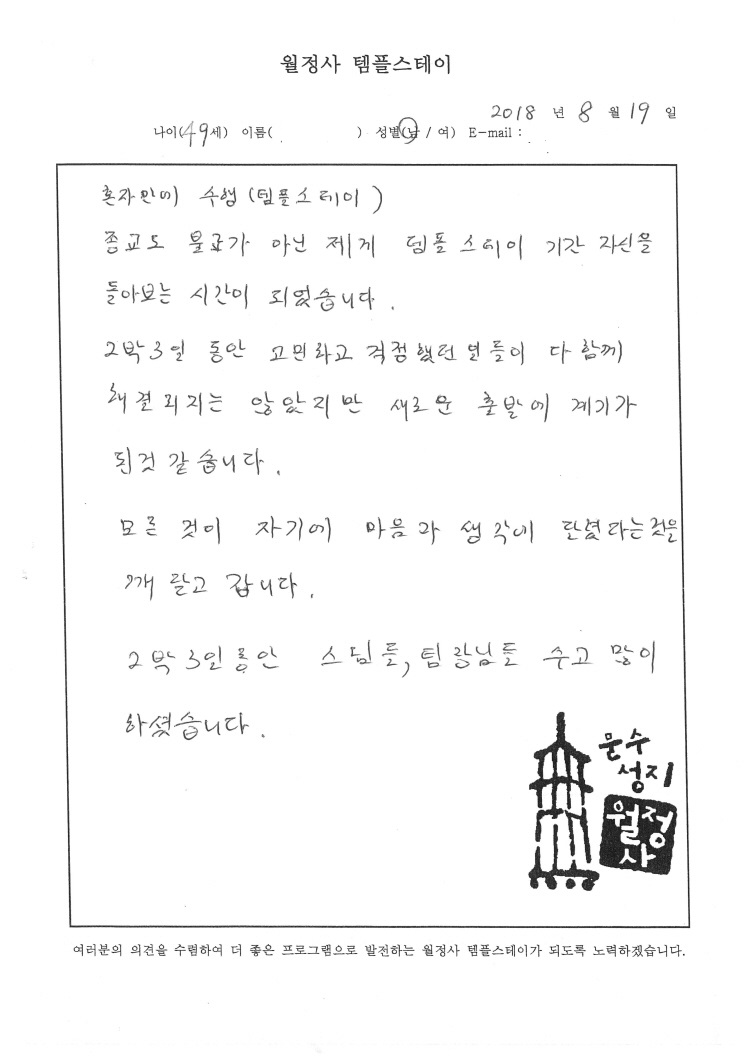 월정사 템플스테이
2018 년 8 월 19 일
나이(49세) 이름( ) 성별(남 / 여) E-mail :
혼자만에 수행 (템플스테이)
종교도 불교가 아닌 제게 템플스테이 기간 자신을
돌아보는 시간이 되었습니다.
2박 3일 동안 고민하고 걱정했던 일들이 다 함께
해결되지는 않았지만 새로운 출발에 계기가
된것 같습니다.
모른 것이 자기에 마음과 생각에 단렸다는것을
깨닫고 갑니다.
2박 3일동안 스님들, 팀장님들 수고 많이
하셨습니다.
문수
성지
월정
사
여러분의 의견을 수렴하여 더 좋은 프로그램으로 발전하는 월정사 템플스테이가 되도록 노력하겠습니다.